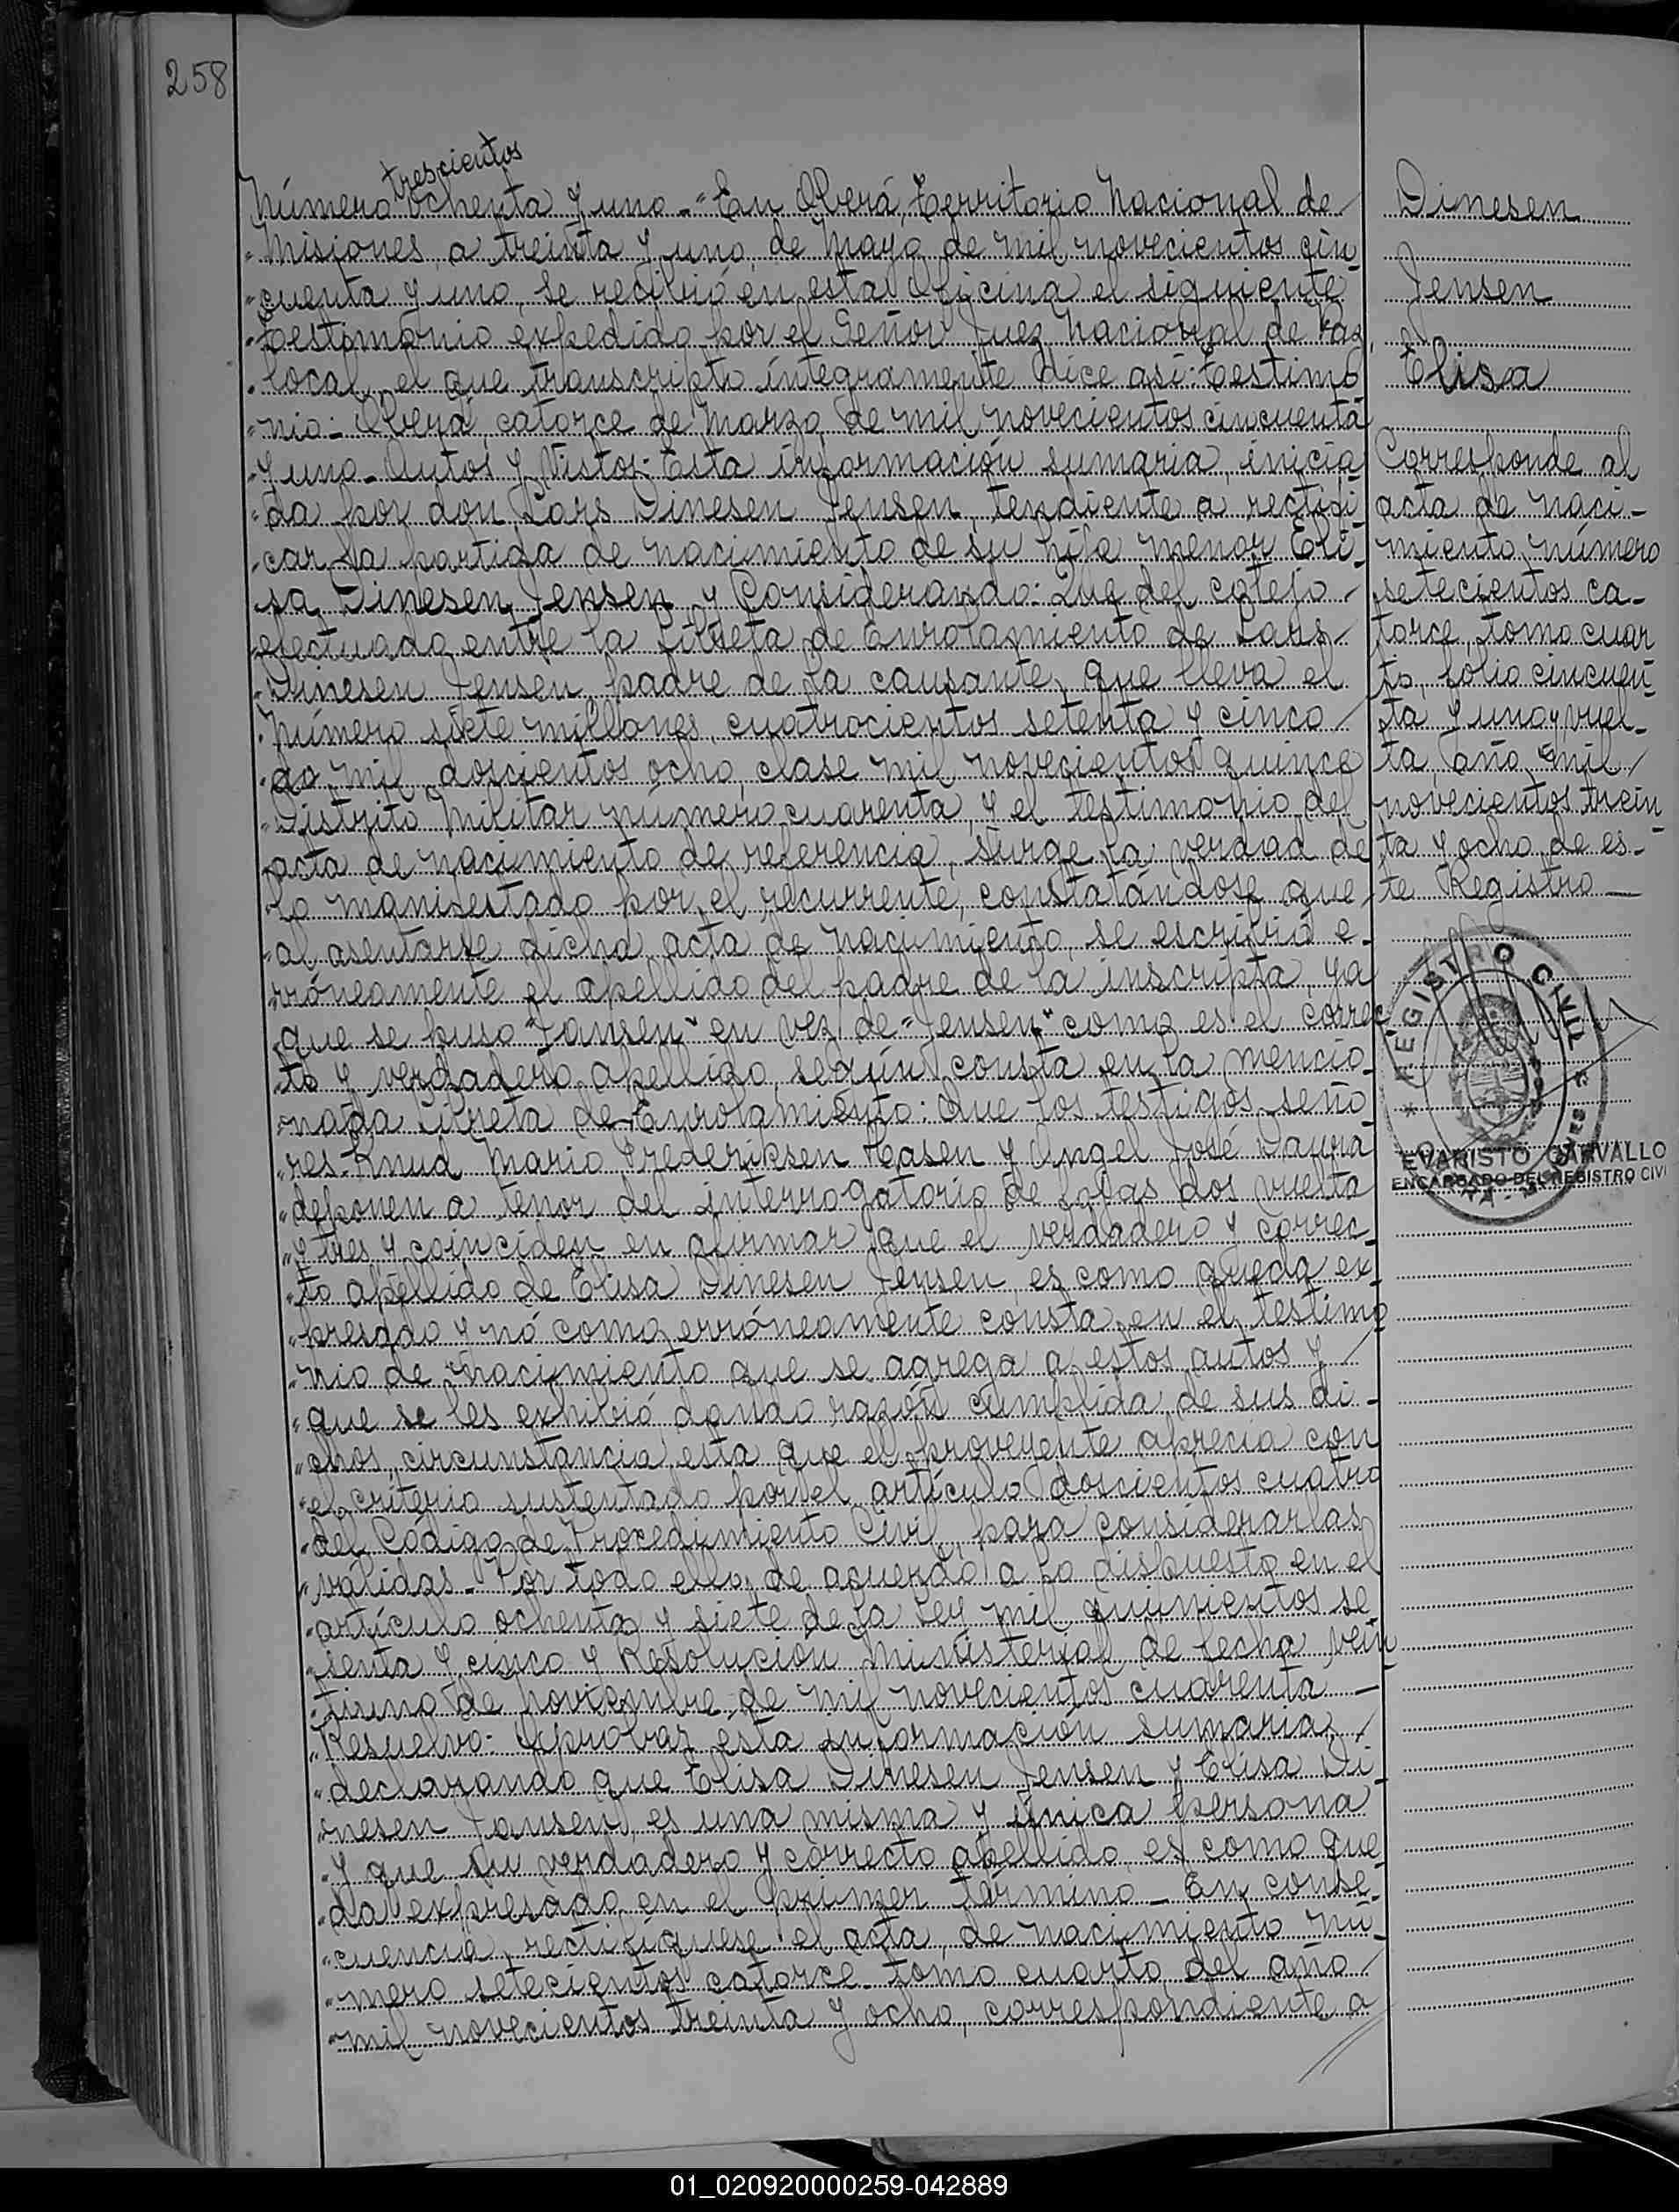 258
trescientos
Número ochenta y uno.-"En Oberá, Territorio Nacional de /
"Misiones, a treinta y uno, de Mayo de mil novecientos cin-
"cuenta y uno, se recibió en esta Oficina el siguiente
"testimonio expedido por el Señor Juez Nacional de Paz,
"local, el que transcripto íntegramente dice así: Testimo
"nio:- Oberá, catorce de Marzo de mil novecientos cincuenta
"y uno.- Autos y Vistos: Esta información sumaria, inicia
"da por don Lars Dinesen Jensen, tendiente a rectifi-
"car la partida de nacimiento de su hija menor Eli-
"sa Dinesen Jensen y Considerando: Que del cotejo /
"efectuado entre la Libreta de Enrolamiento de Lars /
"Dinesen Jensen, padre de la causante, que lleva el
"número siete millones, cuatrocientos setenta y cinco /
"do mil doscientos ocho, clase mil novecientos quince
"Distrito Militar número cuarenta, y el testimonio del
"acta de nacimiento de referencia, surge la verdad de
"lo manifestado por el recurrente, constatándose que /
"al asentarse dicha acta de nacimiento, se escribió e-
"rróneamente el apellido del padre de la inscripta, ya
"que se puso "Jansen" en vez de "Jensen" como es el correc
"to y verdadero apellido, según consta en la mencio-
"nada Libreta de Enrolamiento: Que los testigos seño
"res Knud Mario Frederiksen Hasen y Angel José Daura
"deponen a tenor del interrogatorio de fojas dos vuelta
"y tres y coinciden en afirmar que el verdadero y correc-
"to apellido de Elisa Dinesen Jensen, es como queda ex-
"presado y nó como erróneamente consta en el testimo
"nio de nacimiento que se agrega a estos autos y /
"que se les exhibió dando razón cumplida de sus di-
"chos, circunstancia esta que el proveyente aprecia con
"el criterio sustentado por el artículo doscientos cuatro
"del Código de Procedimiento Civil, para considerarlas
"válidas.- Por todo ello, de acuerdo a lo dispuesto en el
"artículo ochenta y siete de la Ley mil quinientos se
"senta y cinco y Resolución Ministerial de fecha vein
"tiuno de noviembre de mil novecientos cuarenta -
"Resuelvo: Aprobar esta información sumaria, /
"declarando que Elisa Dinesen Jensen y Elisa Di-
"nesen Jansen, es una misma y única persona
"y que su verdadero y correcto apellido, es como que
"da expresado en el primer término.- En conse-
"cuencia, rectifíquese el acta de nacimiento nú-
"mero setecientos catorce tomo cuarto del año /
"mil novecientos treinta y ocho, correspondiente a
Dinesen
Jensen
Elisa
Corresponde al
acta de naci-
miento número
setecientos ca-
torce, tomo cuar
to, folio cincuen-
ta y uno y vuel-
ta, año mil /
novecientos trein-
ta y ocho de es-
te Registro
REGISTRO CIVIL
EVARISTO CARVALLO
ENCARGADO DEL REGISTRO CIVI
01_020920000259-042889